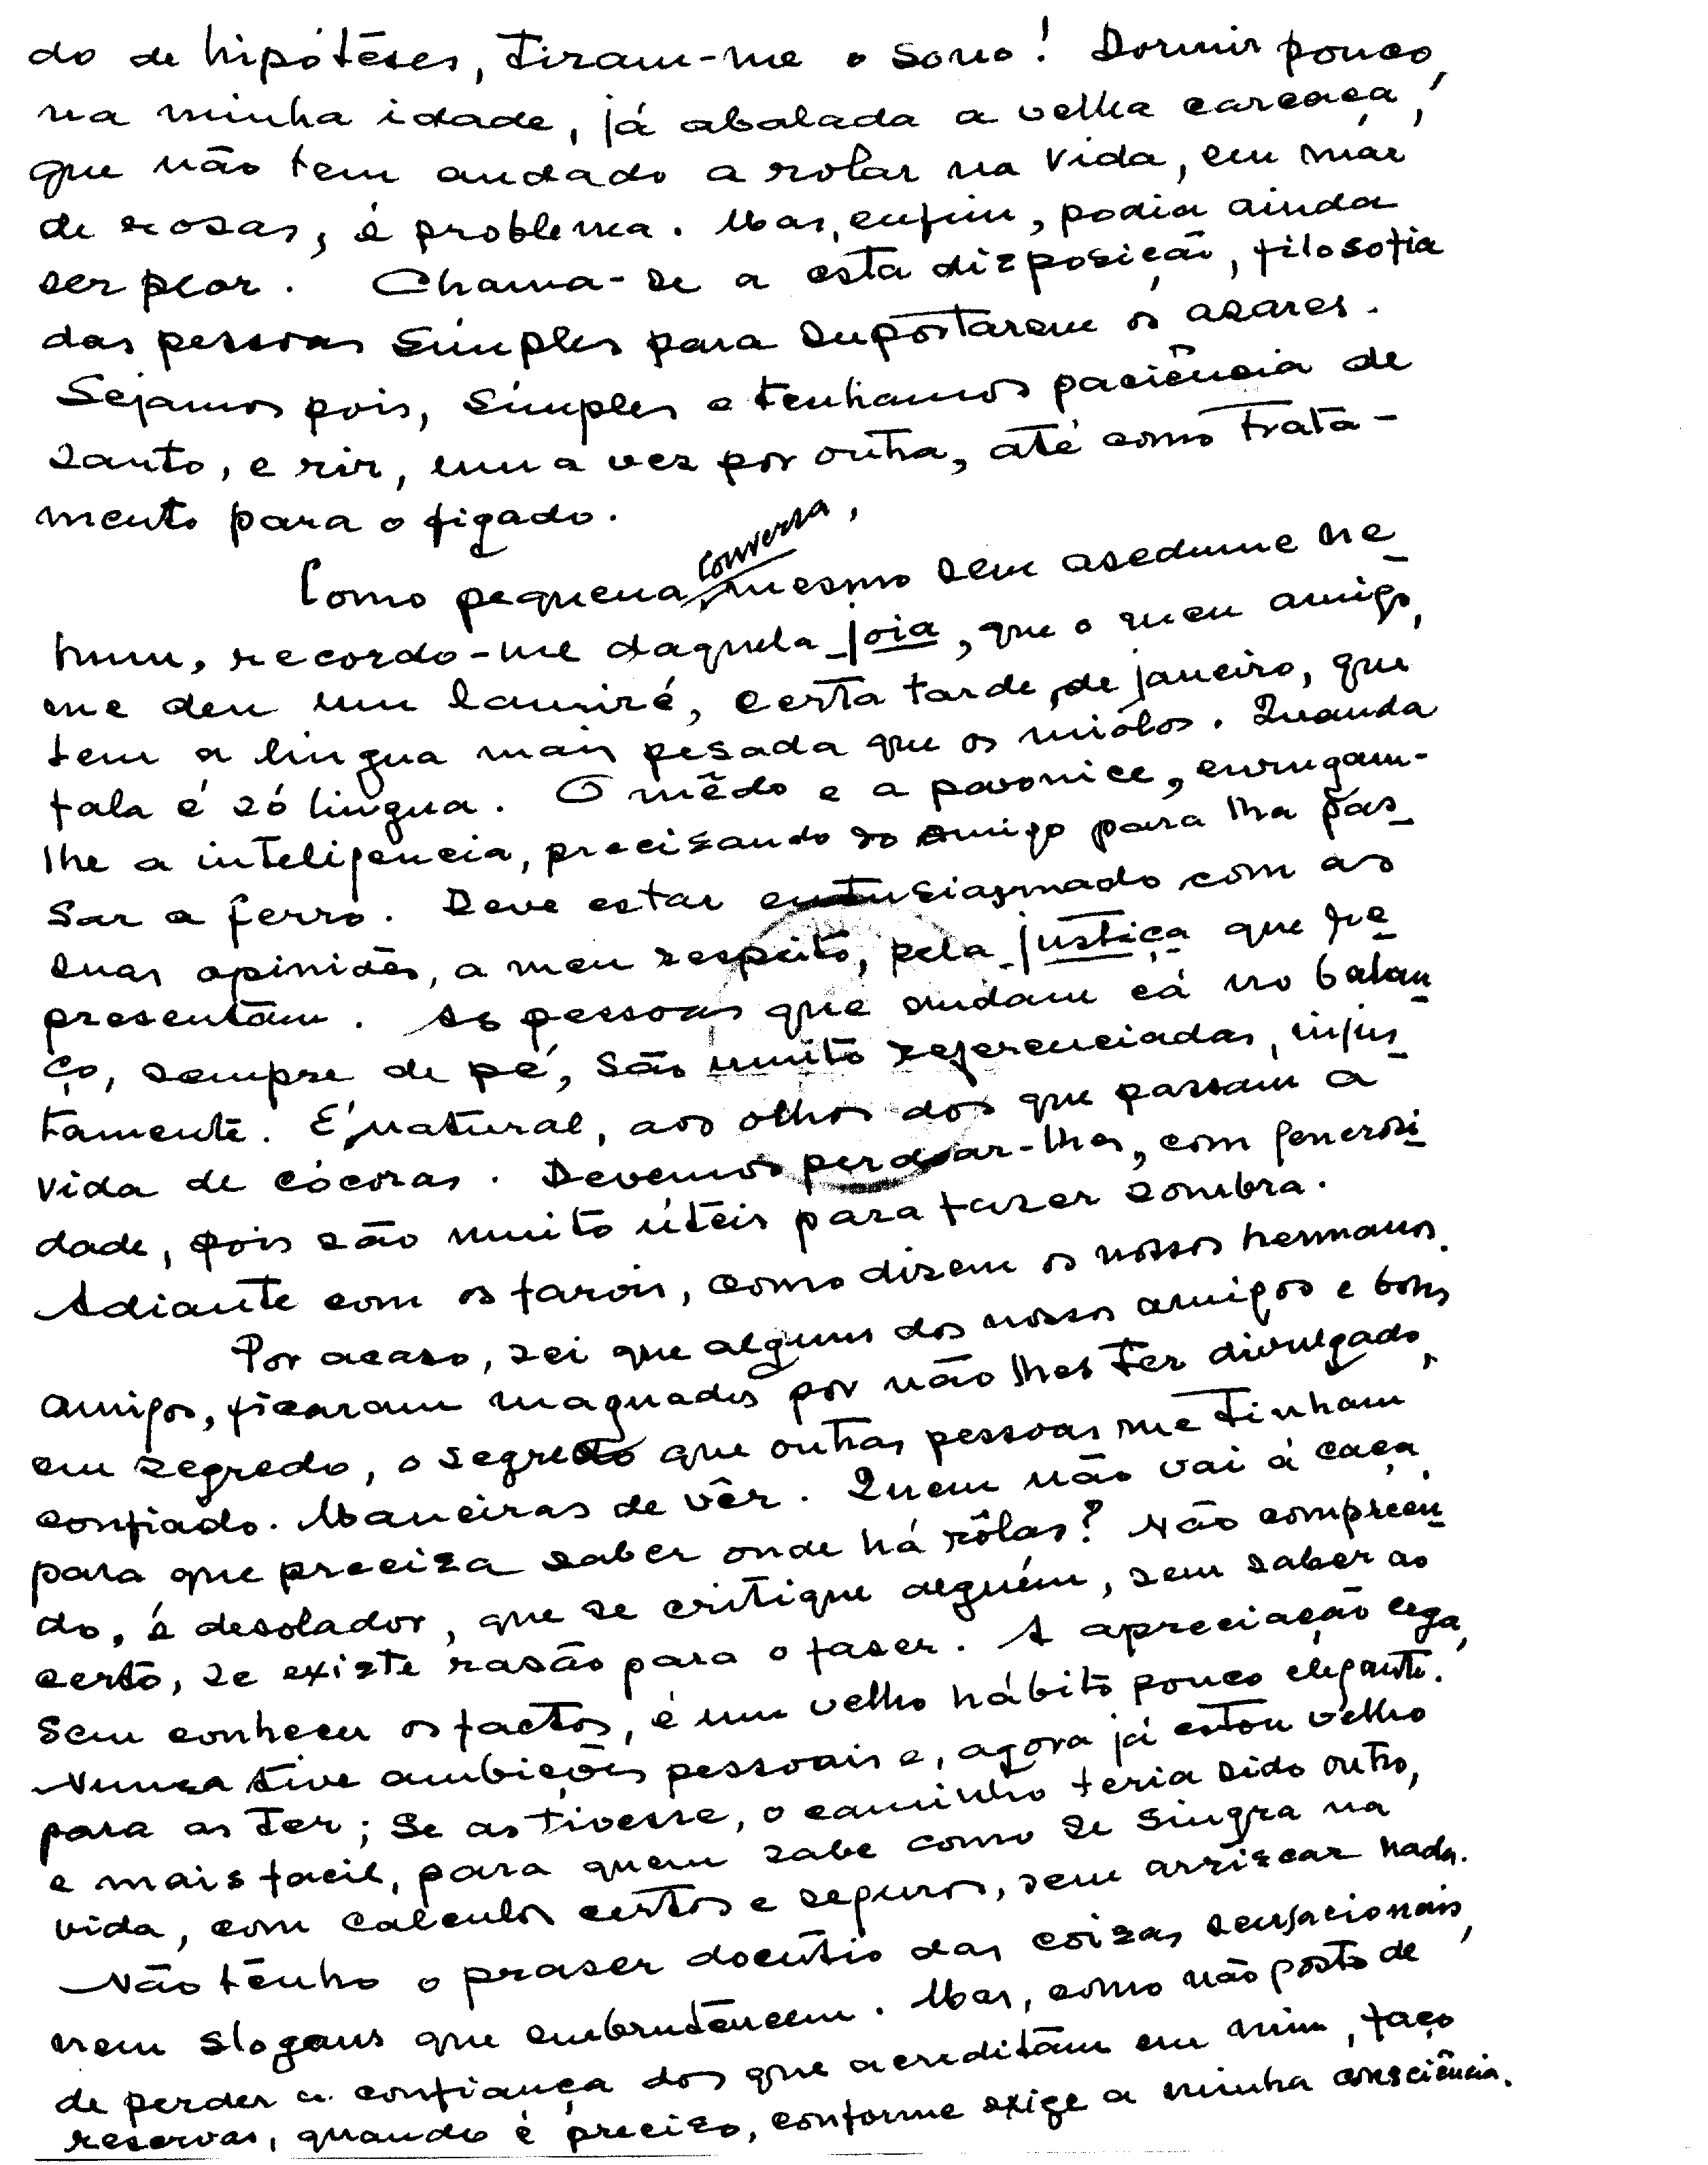 do de hipótêses, tiram-me o sono! Dormir pouco,
na minha idade, já abalada a velha carcaça,
que não tem andado a rolar na vida, em mar
de rosas, é problema. Mas, enfim, podia ainda
ser peor. Chama-se a esta disposição, filosofia
das pessoas símples para supostarem os azares.
Sejamos pois, símples e tenhamos paciência de
santo, e rir, uma vez por outra, até como trata-
mento para o figado.
Como pequena conversa, mesmo sem asedume ne_
hum, recordo-me daquela joia, que o meu amigo,
me deu um lamiré, certa tarde, de janeiro, que
tem a lingua mais pesada que os miólos. Quando
fala é só lingua. O mêdo e a pavonice, enrugam-
lhe a inteligencia, precisando do amigo para lha pas_
sar a ferro. Deve estar entusiasmado com as
suas opiniões, a meu respeito, pela justiça que re_
presentam. As pessoas que andam cá no balan_
ço, sempre de pé, são muito referenciadas, injus_
tamente. É natural, aos olhos dos que passam a
vida de cócoras. Devemos perdoar-lhes, com generosi_
dade, pois são muito úteis para fazer sombra.
Adiante com os farois, como dizem os nossos hermanos.
Por acaso, sei que alguns dos nossos amigos e bons
amigos, ficaram maguados por não lhes ter divulgado,
em segredo, o segredo que outras pessoas me tinham
confiado. Maneiras de vêr. Quem não vai á caça,
para que precisa saber onde há rôlas? Não compreen_
do, é desolador, que se critique alguém, sem saber ao
certo, se existe rasão para o faser. A apreciação cega,
sem conhecer os factos, é um velho hábito pouco elegante.
Nunca tive ambições pessoais e, agora já estou velho
para as ter; se as tivesse, o caminho teria sido outro,
e mais facil, para quem sabe como se singra na
vida, com calculos certos e seguros, sem arriscar nada.
Não tênho o praser doentio das coisas sensacionais,
nem slogans que embrutêncem. Mas, como não gosto de
de perder a confiança dos que acreditam em mim, faço
reservas, quando é preciso, conforme exige a minha consciência.